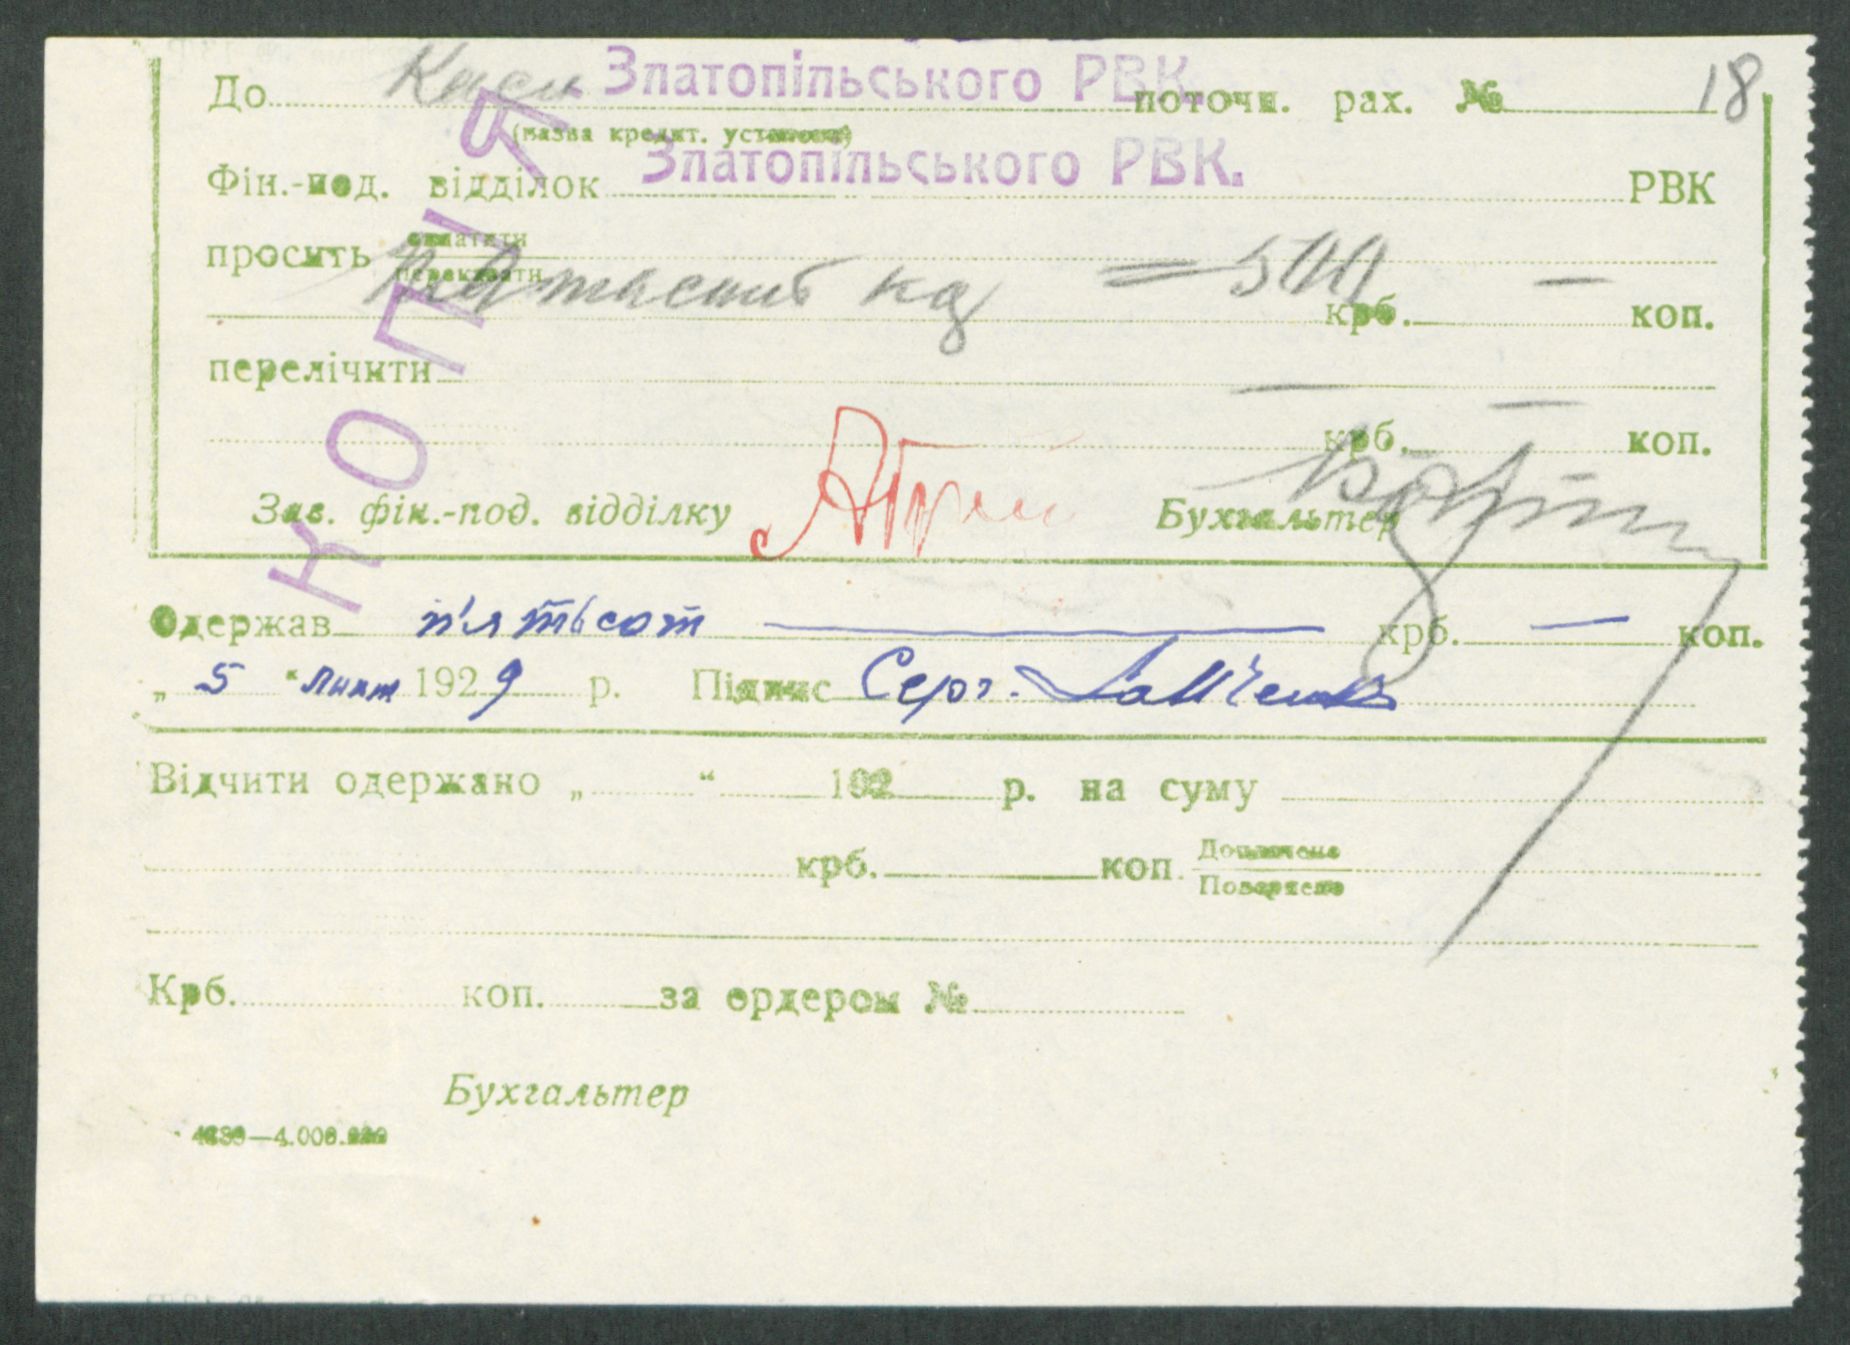 До Каси Златопільського РВК. поточн. рах. № 18
(назва кредит. установи)
Фін.-под. відділок Златопільського РВК. РВК
просить сплатити
переказати
= 500 крб. — коп.
перелічити
— крб. — коп.
Зав. фін.-под. відділку Бухгальтер
КОПІЯ
Одержав п'ятьсот — крб. — коп.
„ 5 “ лют 1929 р. Підпис Серг.
Відчити одержано „ “ 192 р. на суму
крб. коп. Доплачено
Повернено
Крб. коп. за ордером №
Бухгальтер